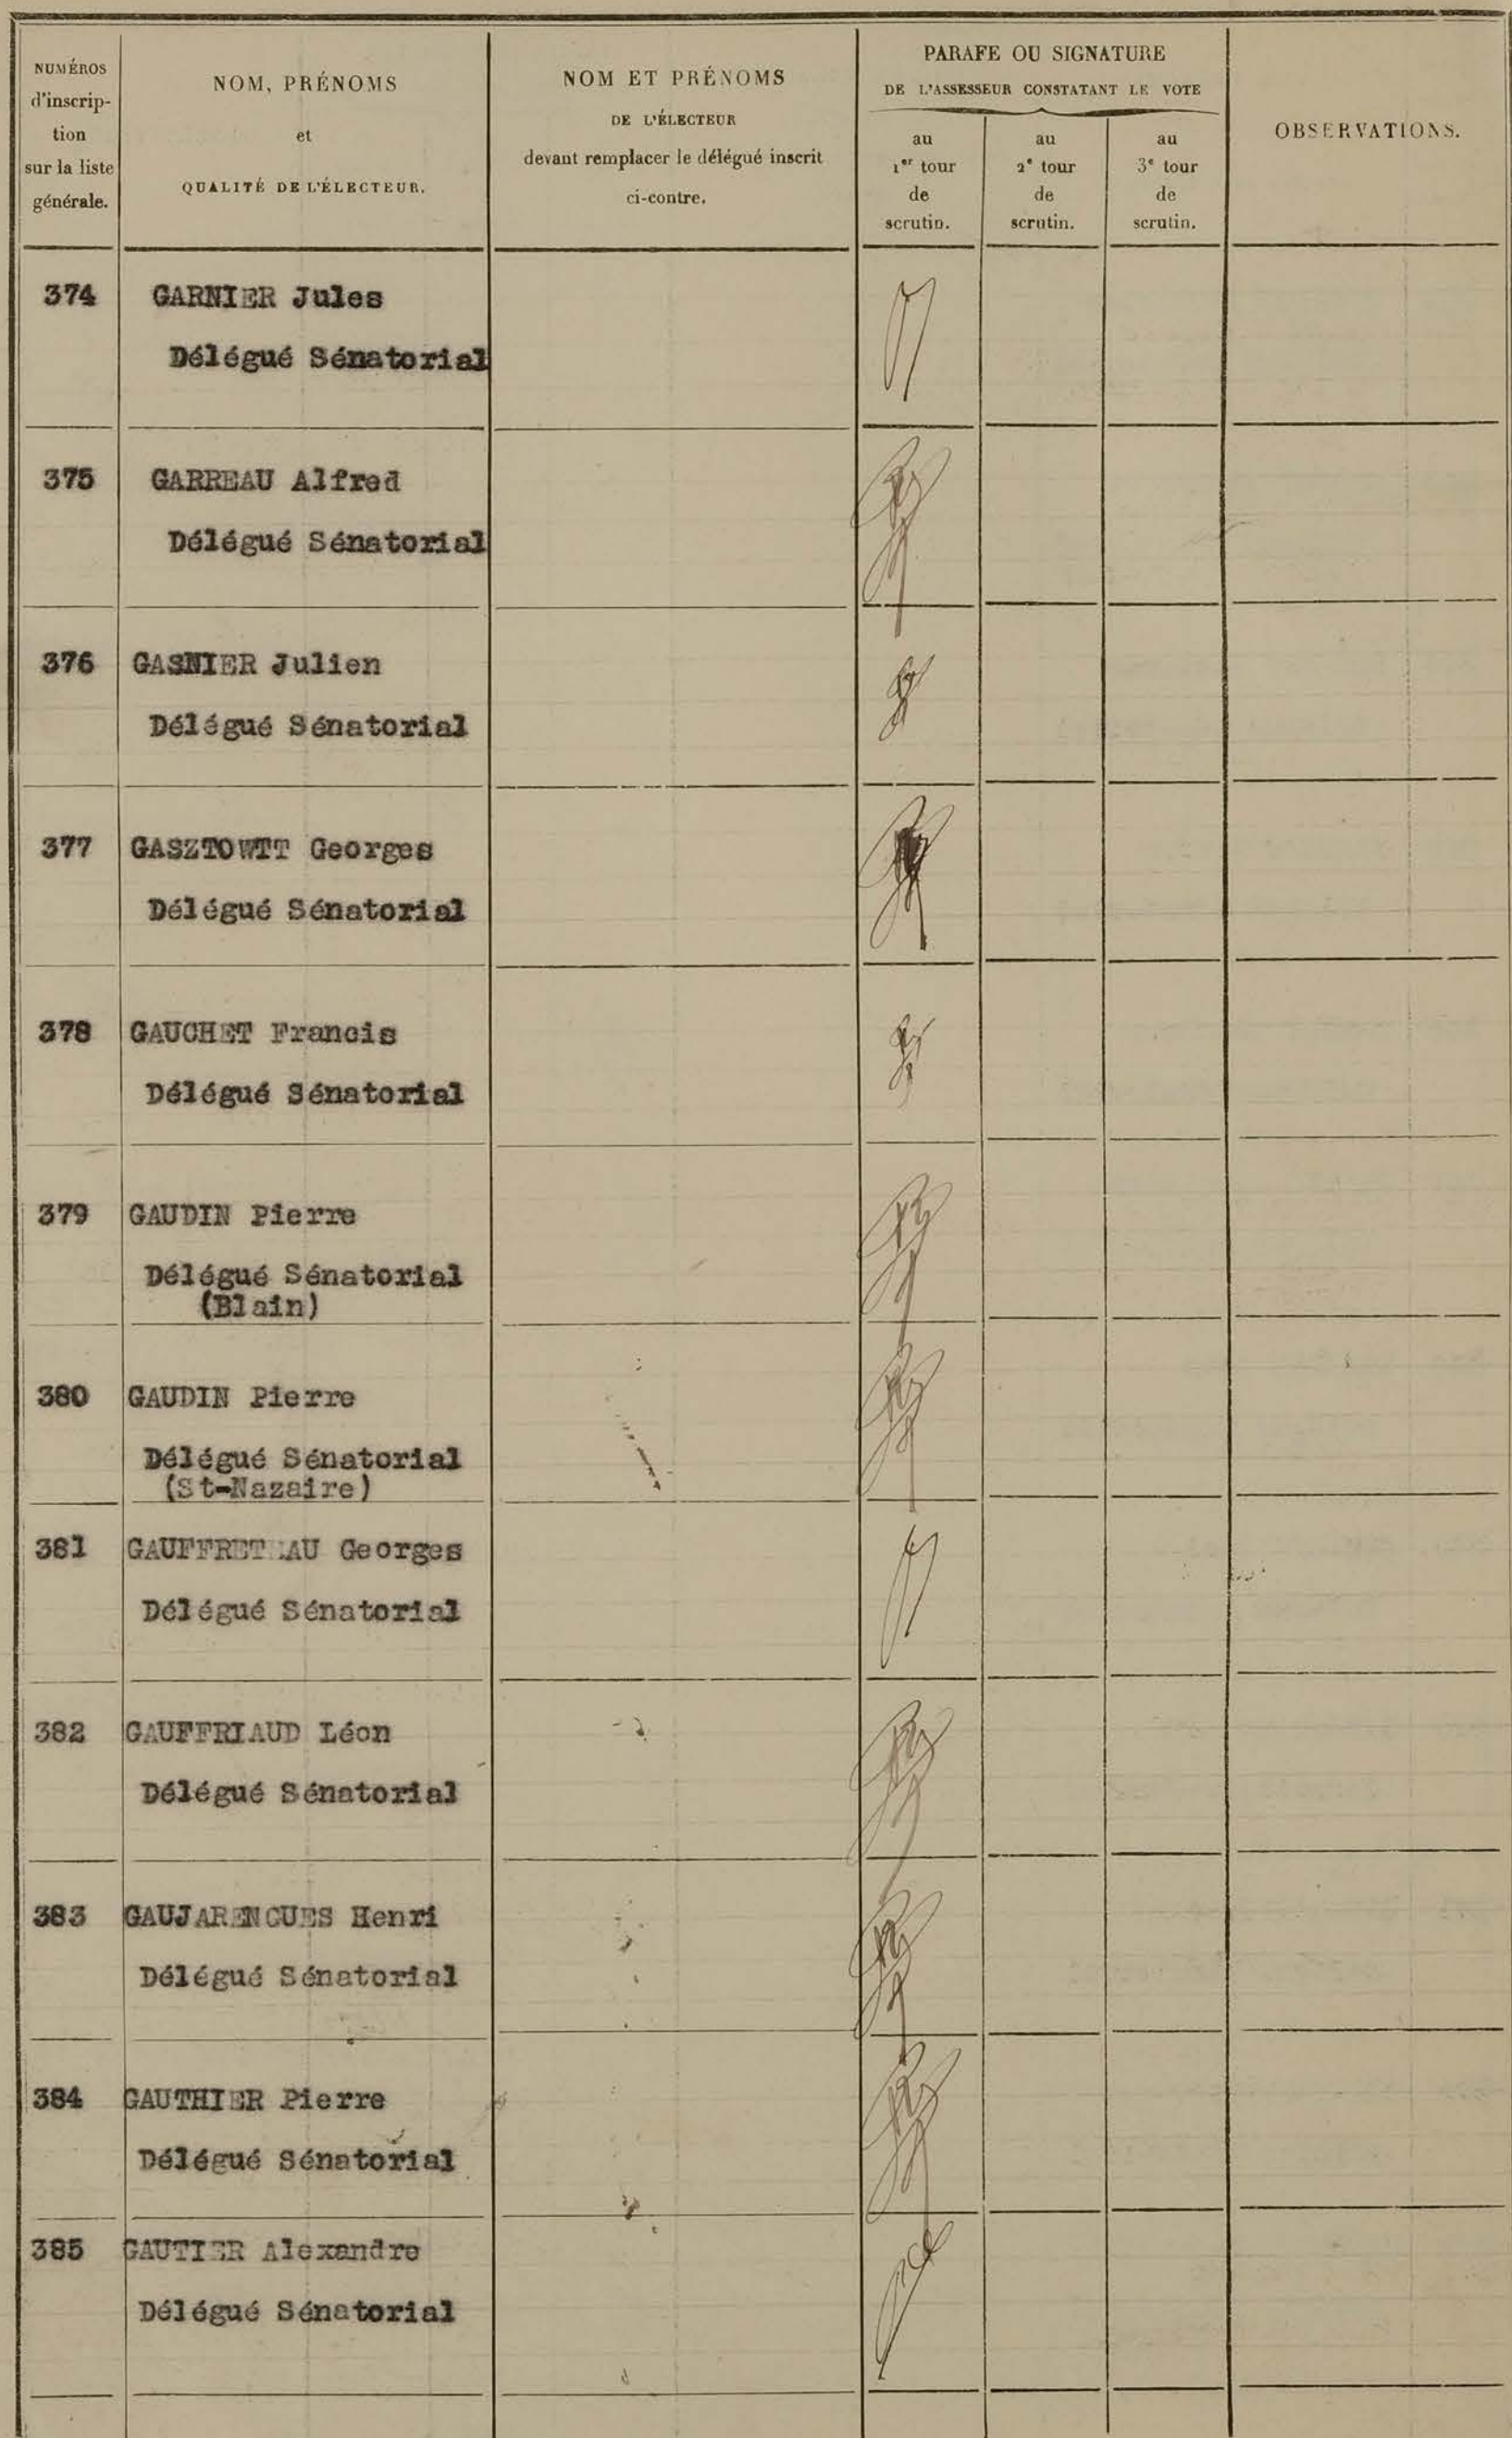 NUMÉROS
d'inscrip-
tion
sur la liste
générale.
NOM, PRÉNOMS
et
QUALITÉ DE L'ÉLECTEUR.
NOM ET PRÉNOMS
DE L'ÉLECTEUR
devant remplacer le délégué inscrit
ci-contre.
PARAFE OU SIGNATURE
DE L'ASSESSEUR CONSTATANT LE VOTE
au
1er tour
de
scrutin.
au
2e tour
de
scrutin.
au
3e tour
de
scrutin.
OBSERVATIONS.
374 GARNIER Jules
Délégué Sénatorial
375 GARREAU Alfred
Délégué Sénatorial
376 GASNIER Julien
Délégué Sénatorial
377 GASZTOWTT Georges
Délégué Sénatorial
378 GAUCHET Francis
Délégué Sénatorial
379 GAUDIN Pierre
Délégué Sénatorial
(Blain)
380 GAUDIN Pierre
Délégué Sénatorial
(St-Nazaire)
381 GAUFFRETEAU Georges
Délégué Sénatorial
382 GAUFFRIAUD Léon
Délégué Sénatorial
383 GAUJARENGUES Henri
Délégué Sénatorial
384 GAUTHIER Pierre
Délégué Sénatorial
385 GAUTIER Alexandre
Délégué Sénatorial